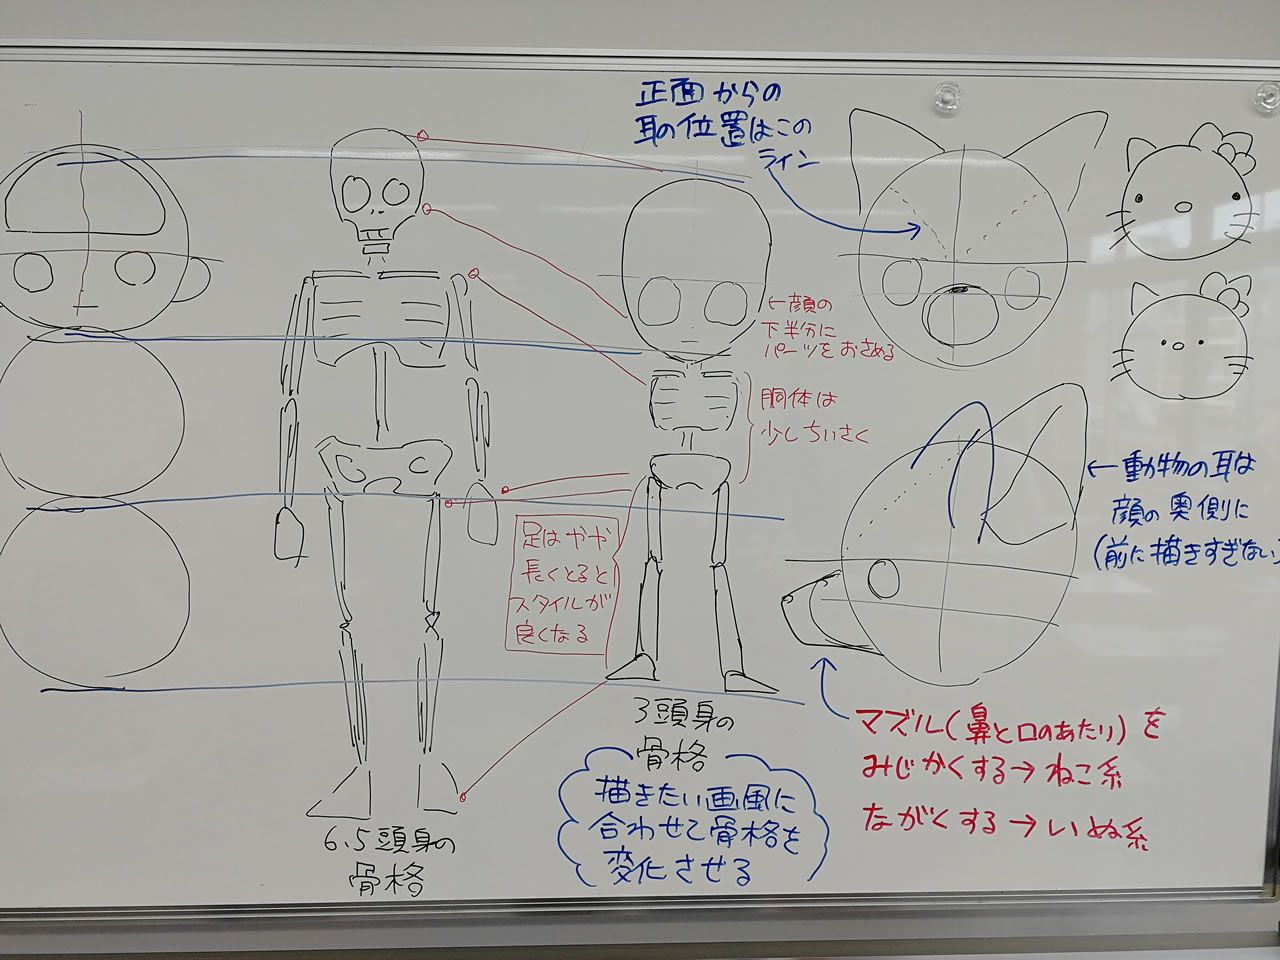 正面からの
耳の位置はこの
ライン
←顔の
下半分に
パーツをおさめる
胴体は
少しちいさく
←動物の耳は
顔の奥側に
(前に描きすぎない)
足はやや
長くとると
スタイルが
良くなる
3頭身の
骨格
マズル(鼻と口のあたり)を
みじかくする→ねこ系
ながくする→いぬ系
描きたい画風に
合わせて骨格を
変化させる
6.5頭身の
骨格